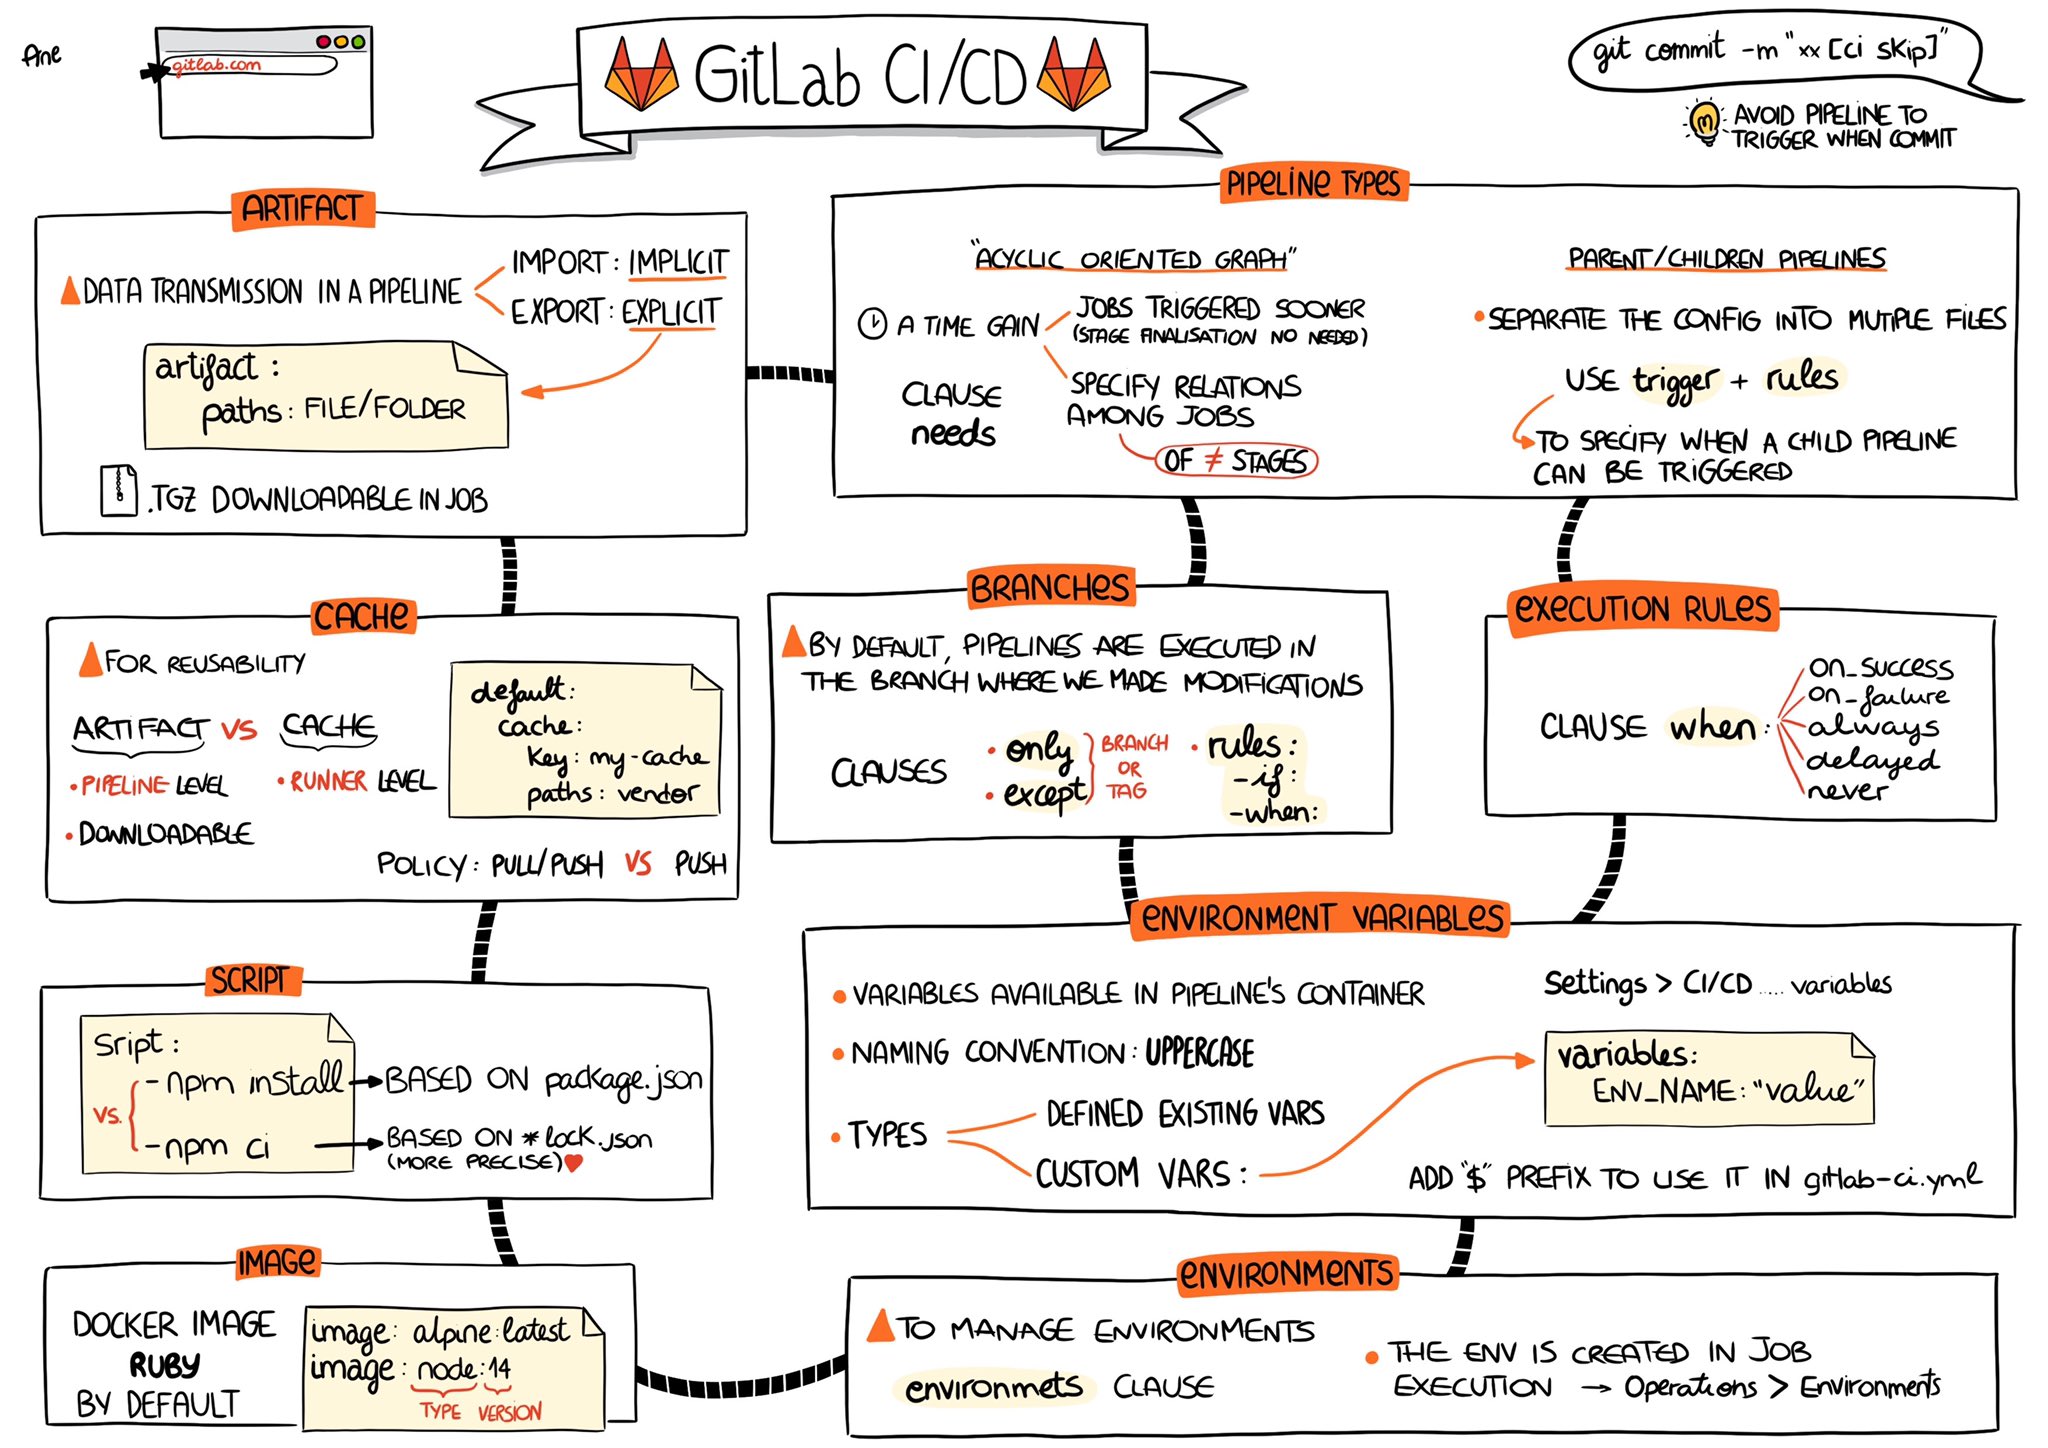 Ane
gitlab.com
GitLab CI/CD
git commit -m "xx [ci skip]"
AVOID PIPELINE TO
TRIGGER WHEN COMMIT
ARTIFACT
DATA TRANSMISSION IN A PIPELINE
IMPORT: IMPLICIT
EXPORT: EXPLICIT
artifact:
paths: FILE/FOLDER
.TGZ DOWNLOADABLE IN JOB
PIPELINE TYPES
"ACYCLIC ORIENTED GRAPH"
A TIME GAIN
JOBS TRIGGERED SOONER
(STAGE FINALISATION NO NEEDED)
SPECIFY RELATIONS
AMONG JOBS
OF ≠ STAGES
CLAUSE
needs
PARENT/CHILDREN PIPELINES
• SEPARATE THE CONFIG INTO MUTIPLE FILES
USE trigger + rules
TO SPECIFY WHEN A CHILD PIPELINE
CAN BE TRIGGERED
CACHE
FOR REUSABILITY
ARTIFACT VS CACHE
• PIPELINE LEVEL
• DOWNLOADABLE
• RUNNER LEVEL
default:
cache:
key: my-cache
paths: vendor
POLICY: PULL/PUSH VS PUSH
BRANCHES
BY DEFAULT, PIPELINES ARE EXECUTED IN
THE BRANCH WHERE WE MADE MODIFICATIONS
CLAUSES
• only
• except
BRANCH
OR
TAG
• rules:
-if:
-when:
EXECUTION RULES
CLAUSE when:
on_success
on_failure
always
delayed
never
SCRIPT
Sript:
vs.
- npm install
BASED ON package.json
- npm ci
BASED ON *lock.json
(MORE PRECISE)
ENVIRONMENT VARIABLES
• VARIABLES AVAILABLE IN PIPELINE'S CONTAINER
• NAMING CONVENTION: UPPERCASE
• TYPES
DEFINED EXISTING VARS
CUSTOM VARS:
Settings > CI/CD ..... variables
variables:
ENV_NAME: "value"
ADD "$" PREFIX TO USE IT IN gitlab-ci.yml
IMAGE
DOCKER IMAGE
RUBY
BY DEFAULT
image: alpine:latest
image: node:14
TYPE VERSION
ENVIRONMENTS
TO MANAGE ENVIRONMENTS
environmets CLAUSE
• THE ENV IS CREATED IN JOB
EXECUTION → Operations > Environments